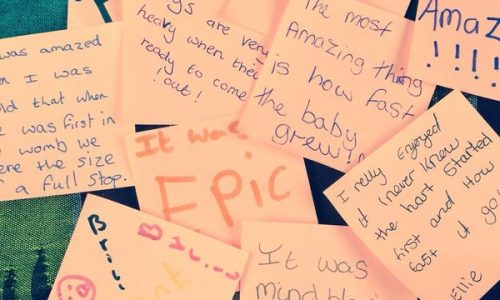 was amazed
I was
that when
was first in
womb we
the size
a full stop.
are very
heavy when they
ready to come
out!
The most
Amazing thing
is how fast
the baby
grew!
Amaz
!!!!!
It was
Epic
I really Enjoyed
it I never knew
the hart Started
first and How
fast it go
Ellie
It was
mind